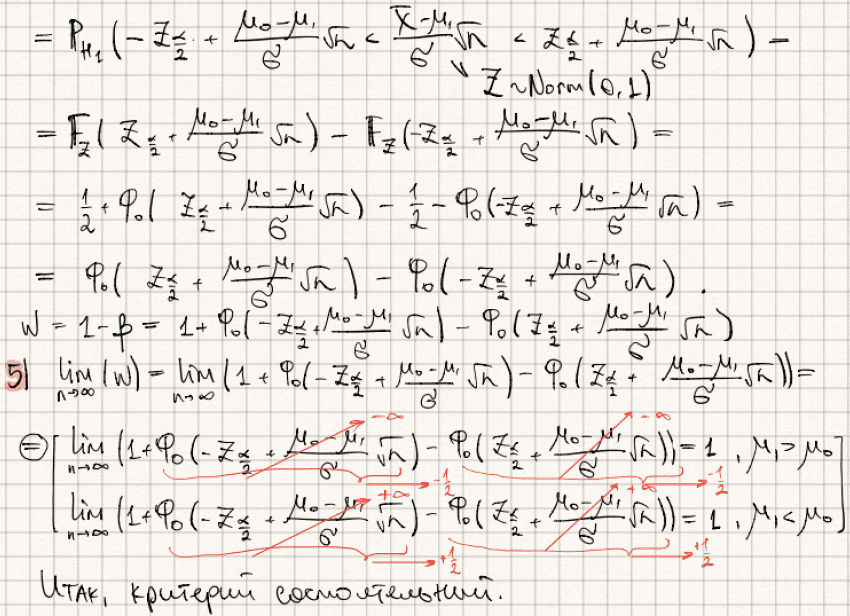 = P_{H_1}(-Z_{\frac{α}{2}} + \frac{μ_0-μ_1}{σ}√n < \frac{X̄-μ_1}{σ}√n < Z_{\frac{α}{2}} + \frac{μ_0-μ_1}{σ}√n) =
Z ~ Norm(0,1)
= F_Z(Z_{\frac{α}{2}} + \frac{μ_0-μ_1}{σ}√n) - F_Z(-Z_{\frac{α}{2}} + \frac{μ_0-μ_1}{σ}√n) =
= \frac{1}{2} + Φ_0(Z_{\frac{α}{2}} + \frac{μ_0-μ_1}{σ}√n) - \frac{1}{2} - Φ_0(-Z_{\frac{α}{2}} + \frac{μ_0-μ_1}{σ}√n) =
= Φ_0(Z_{\frac{α}{2}} + \frac{μ_0-μ_1}{σ}√n) - Φ_0(-Z_{\frac{α}{2}} + \frac{μ_0-μ_1}{σ}√n).
W = 1-β = 1+Φ_0(-Z_{\frac{α}{2}} + \frac{μ_0-μ_1}{σ}√n) - Φ_0(Z_{\frac{α}{2}} + \frac{μ_0-μ_1}{σ}√n)
5) lim_{n→∞}(W) = lim_{n→∞}(1 + Φ_0(-Z_{\frac{α}{2}} + \frac{μ_0-μ_1}{σ}√n) - Φ_0(Z_{\frac{α}{2}} + \frac{μ_0-μ_1}{σ}√n)) =
-∞ -∞
= [ lim_{n→∞}(1+Φ_0(-Z_{\frac{α}{2}} + \frac{μ_0-μ_1}{σ}√n) - Φ_0(Z_{\frac{α}{2}} + \frac{μ_0-μ_1}{σ}√n)) = 1, μ_1 > μ_0 ]
-\frac{1}{2} -\frac{1}{2}
+∞ +∞
lim_{n→∞}(1+Φ_0(-Z_{\frac{α}{2}} + \frac{μ_0-μ_1}{σ}√n) - Φ_0(Z_{\frac{α}{2}} + \frac{μ_0-μ_1}{σ}√n)) = 1, μ_1 < μ_0
+\frac{1}{2} +\frac{1}{2}
Итак, критерий состоятельный.